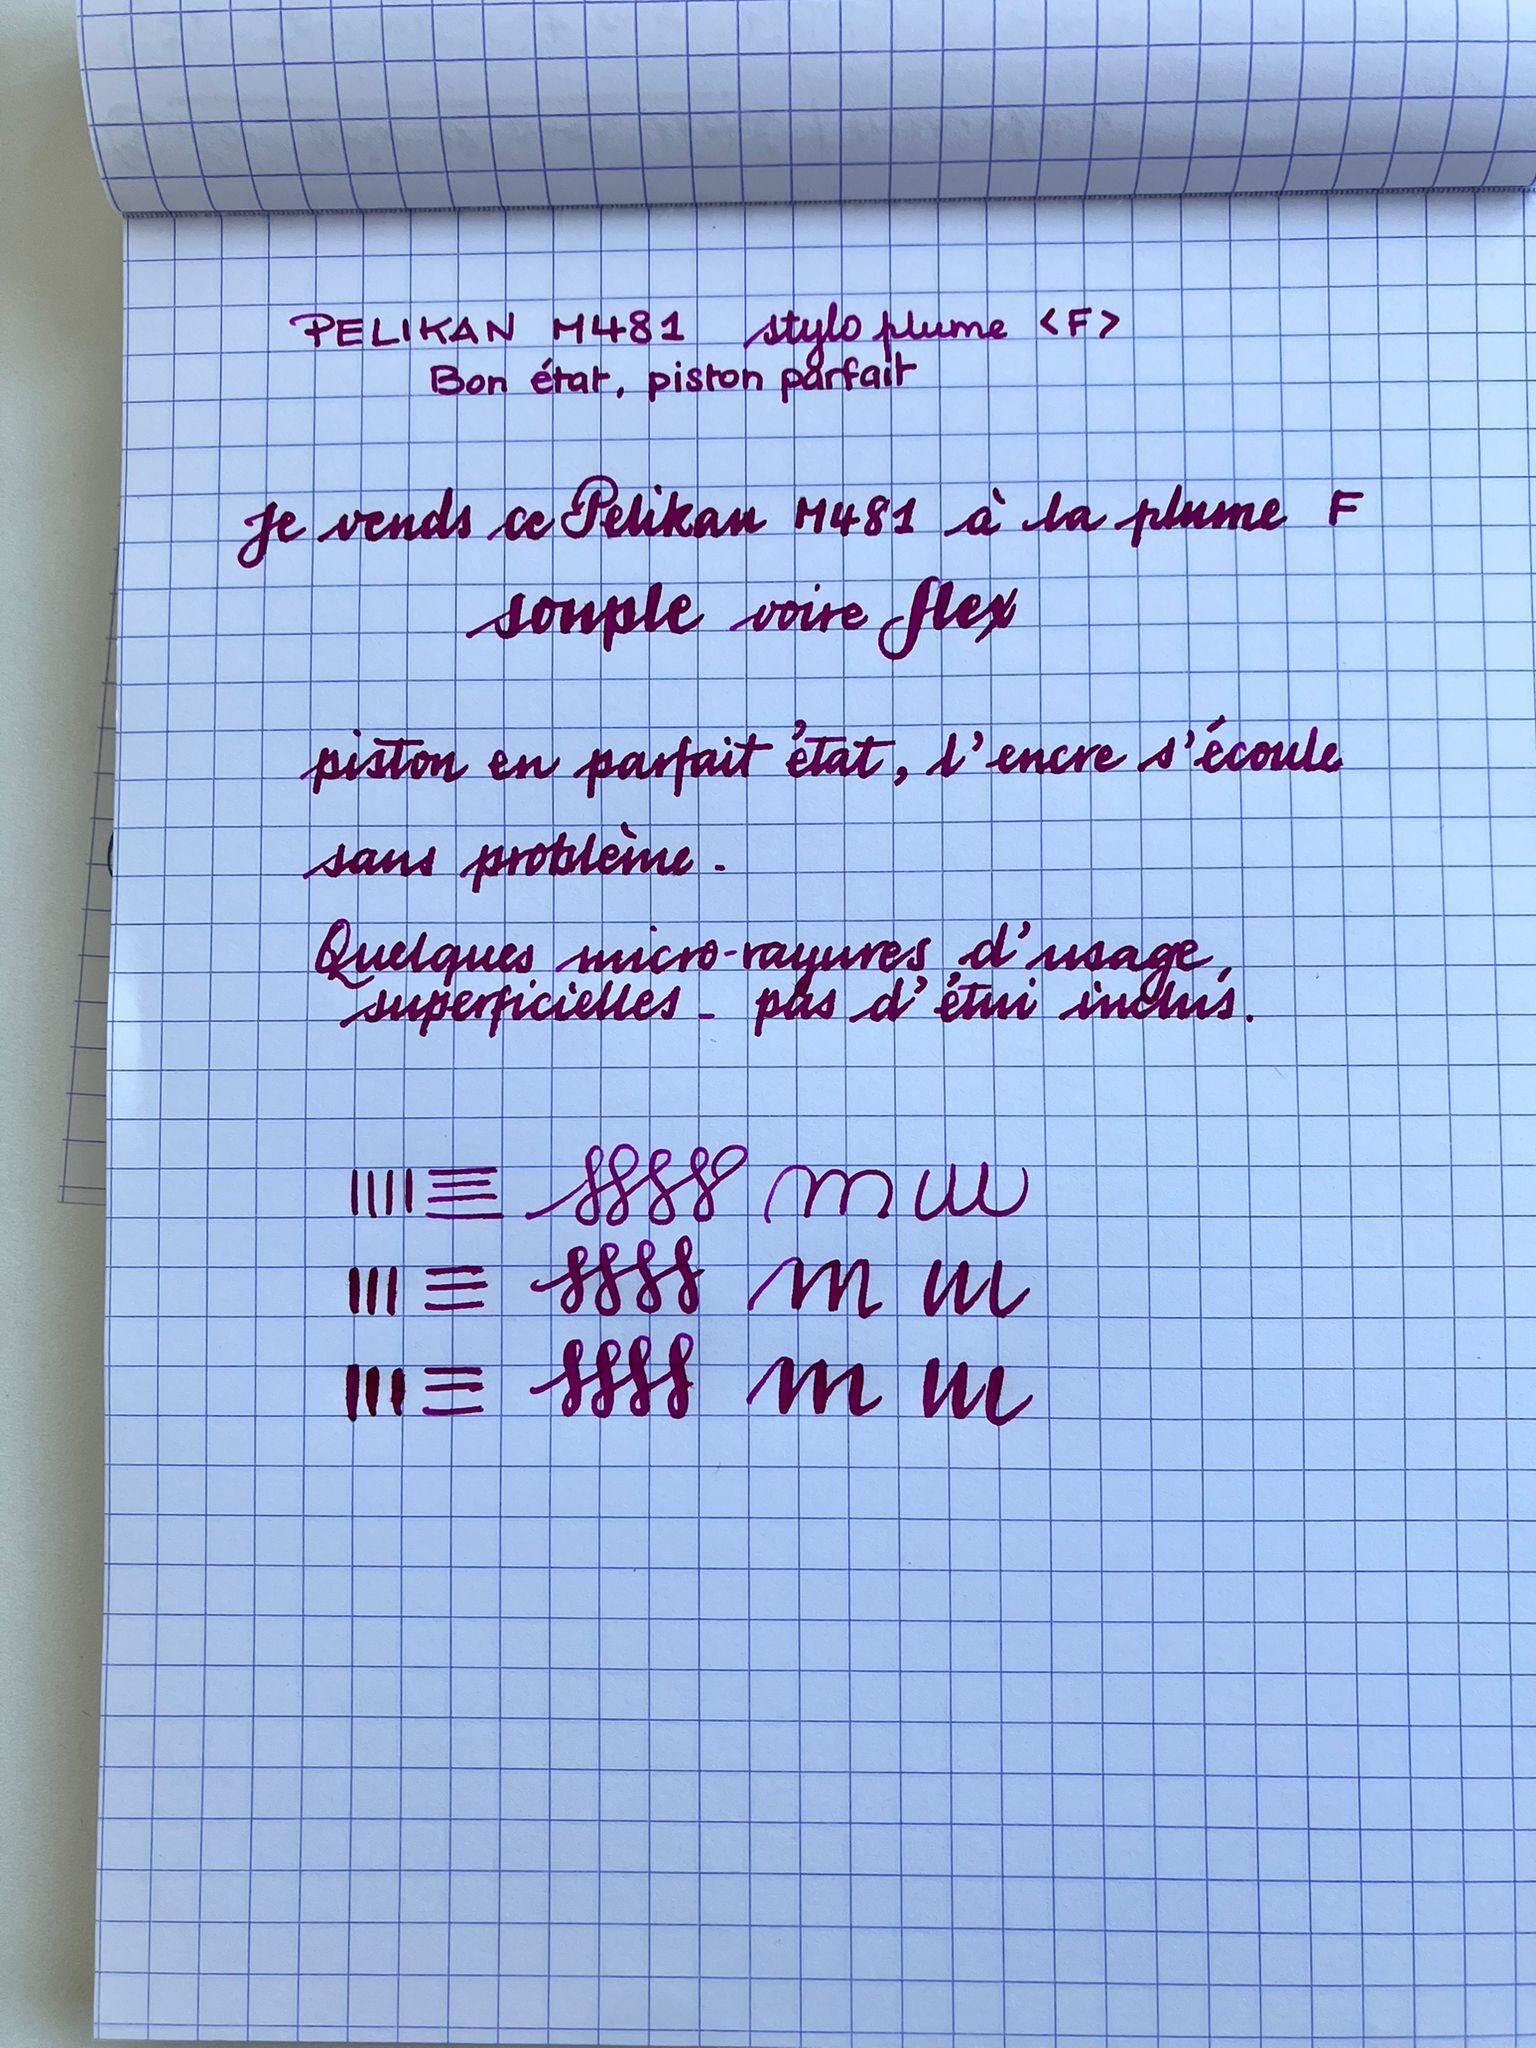 PELIKAN M481 stylo plume <F>
Bon état, piston parfait
Je vends ce Pelikan M481 à la plume F
souple voire flex
piston en parfait état, l'encre s'écoule
sans problème.
Quelques micro-rayures d'usage,
superficielles - pas d'étui inclus.
m u
m u
m u